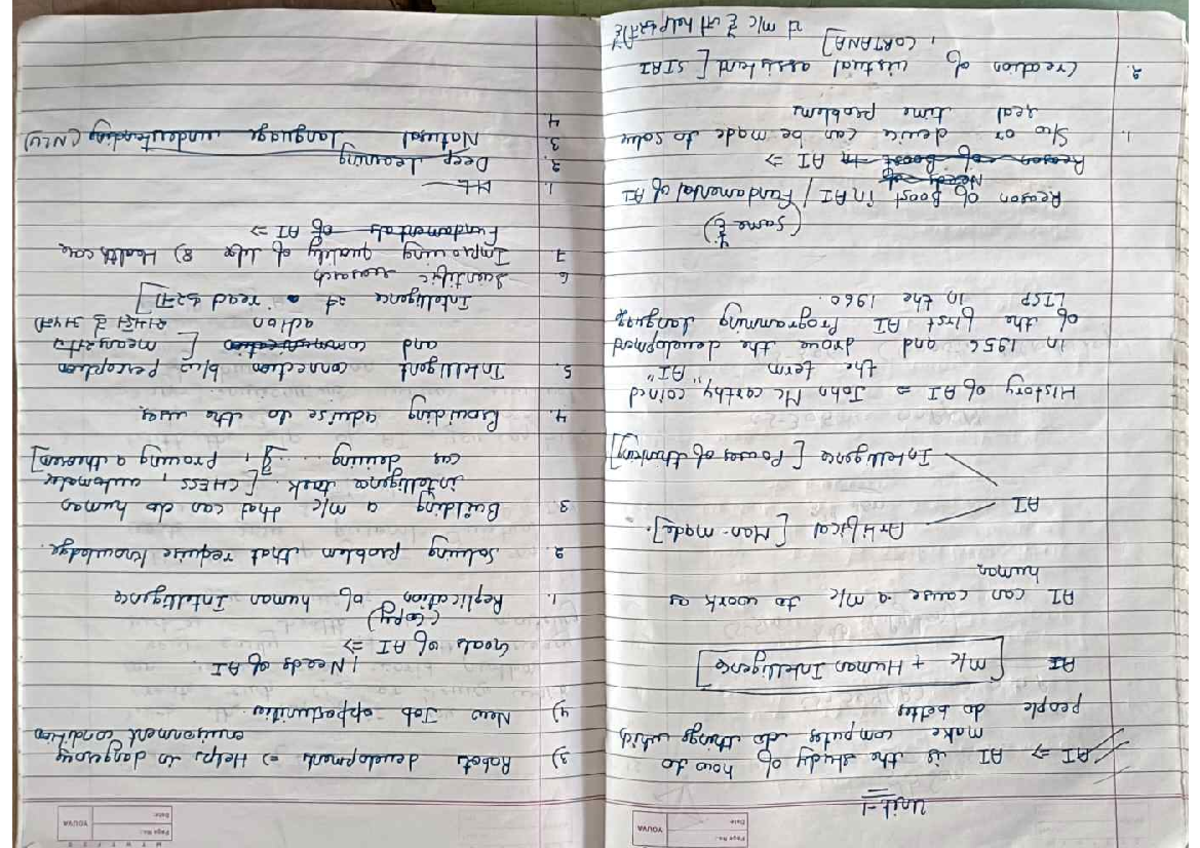 Page No.:
Date:
YOUVA
Unit-1
AI ⇒ AI is the study of how to
make computer do things which
people do better
AI [m/c + Human Intelligence]
AI can cause a m/c to work as
human
Artifical [Man-made].
AI
Intelligence [Power of thinking]
History of AI ⇒ John Mc carthy, coined
the term "AI"
in 1956 and drove the development
of the first AI Programming language
LISP in the 1960.
(same है)
Reason of Boost in AI / Fundamental of AI
Needs of
Reason of Boost in AI ⇒
1. S/w or device can be made to solve
real time problems
2. Creation of virtual assistant [SIRI
, CORTANA] m/c है help करती है
M T W T F S S
Page No.:
Date:
YOUVA
3) Robots development ⇒ Helps in dangerous
environment condition
4) New Job opportunities.
/ Needs of AI.
Goals of AI ⇒
(Copy)
1. Replication of human Intelligence
2. Solving problem that require knowledge.
3. Building a m/c that can do human
intelligence task. [CHESS, automatic
car driving ..., Proving a theorem]
4. Providing advise to the user
5. Intelligent connection b/w Perception
and communication [
action
Intelligence read करना]
6 Scientific research
7 Improving quality of life 8) Health care
Fundamentals of AI ⇒
1. ML
2. Deep learning
3 Natural language understanding (NLU)
4